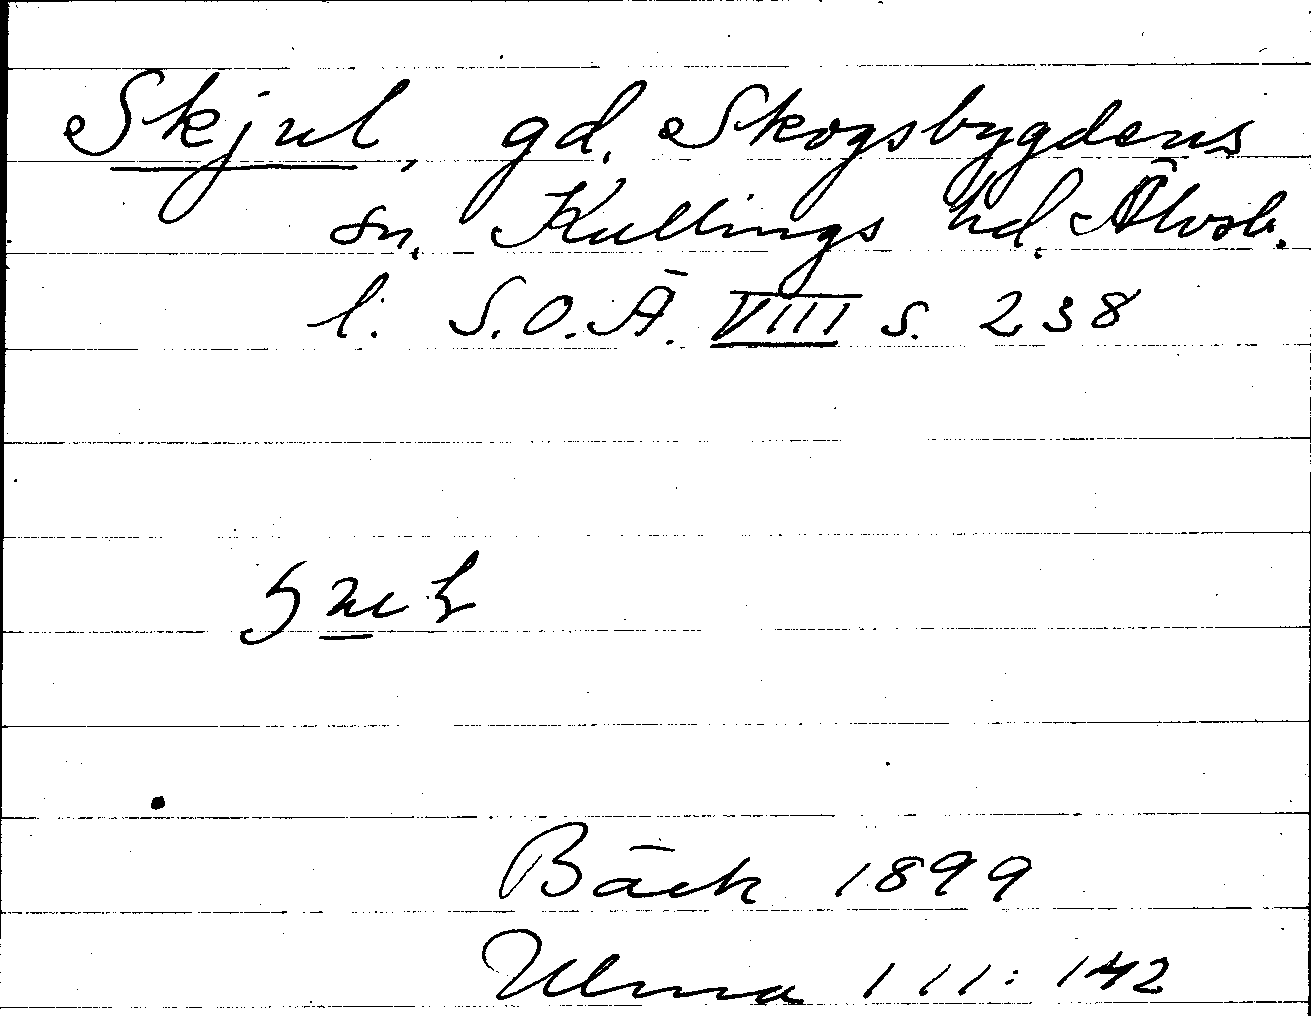 Skjul, gd. Skogsbygdens
sn. Kullings hd. Älvsb.
l. S.O.Ä. VIII s. 238
Bäck 1899
Ulma 111:142